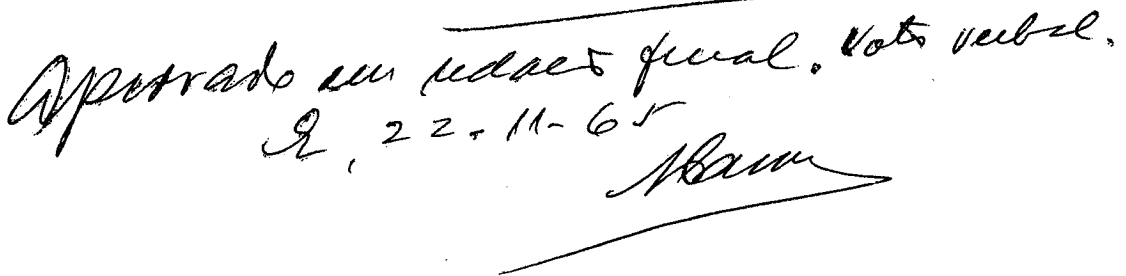 Aprovado em redação final. Voto verbal.
22-11-65